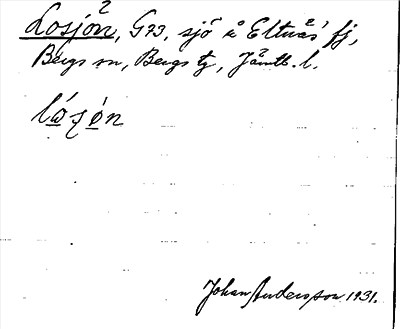 Losjön, G23, sjö å Eltnäs fj,
Bergs sn, Bergs tg, Jämtl. l.
Johan Andersson 1931.